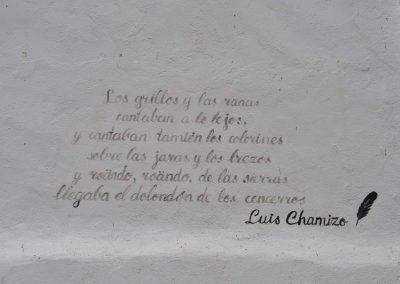 Los grillos y las ranas
cantaban a lo lejos,
y cantaban tamién los colorines
sobre las jaras y los brezos
y roändo, roändo, de las sierras
llegaba el dolondón de los cencerros
Luis Chamizo